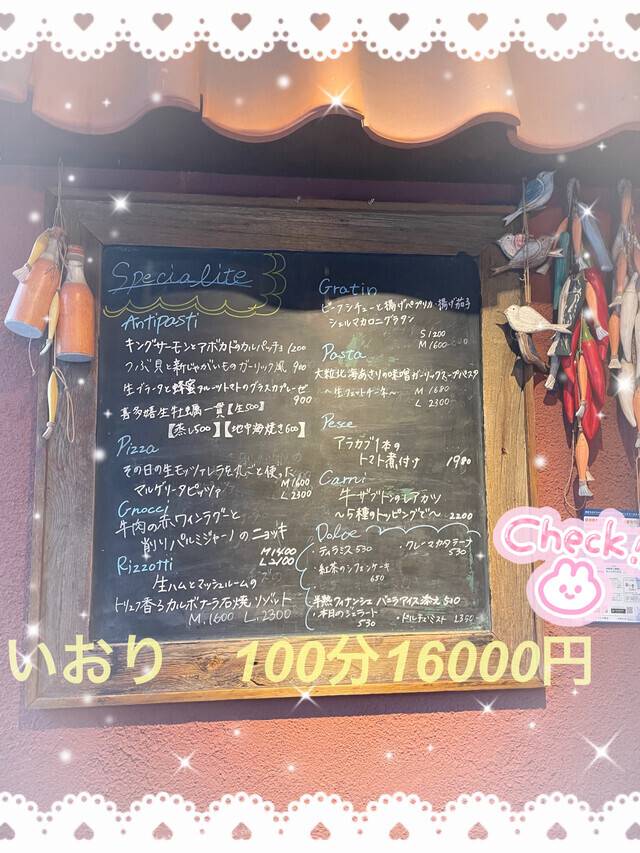 Specialite
Antipasti
キングサーモンとアボカドのカルパッチョ 1200
つぶ貝と新じゃがいものガーリック風 900
生ブラータと蜂蜜フルーツトマトのグラスカプレーゼ
900
喜多嬉生牡蠣一貫【生500】
【蒸し500】【地中海焼き600】
Pizza
その日の生モッツァレラを丸ごと使った
マルゲリータピッツァ
M1600
L2300
Gnocci
牛肉の赤ワインラグーと
削りパルミジャーノのニョッキ
L2100
Rizzotti
生ハムとマッシュルームの
トリュフ香るカルボナーラ石焼リゾット
M.1600 L.2300
Gratin
ビーフシチューと揚げパプリカ・揚げ茄子
シェルマカロニグラタン
S1200
M1600
Pasta
大粒北海あさりの味噌ガーリックスープパスタ
〜生フェットチーネ〜
M1680
L2300
Pesce
アラカブ1本の
トマト煮付け 1980
Carni
牛ザブトンのレアカツ
〜5種のトッピングで〜 2200
Dolce
・ティラミス530
・クレーマカタラーナ
530
・紅茶のシフォンケーキ
650
半熟フィナンシェ バニラアイス添え
・本日のジェラート
530
・ドルチェミスト
いおり 100分16000円
Check!